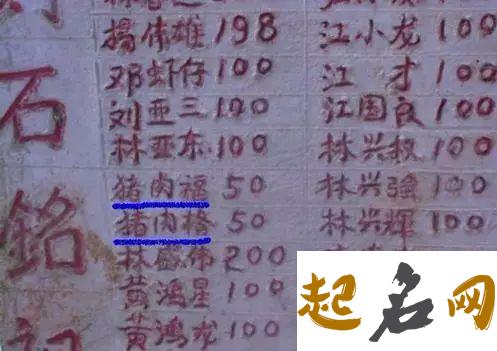 石銘
楊伟雄 198 江小龙 100
邓虾仔 100 江才 100
刘亚三 100 江国良 100
林亚东 100 林兴权 100
猪肉福 50 林兴强 100
猪肉格 50 林兴辉 100
林盛伟 200
黄鸿星 100
黄鸿龙 100
起名网